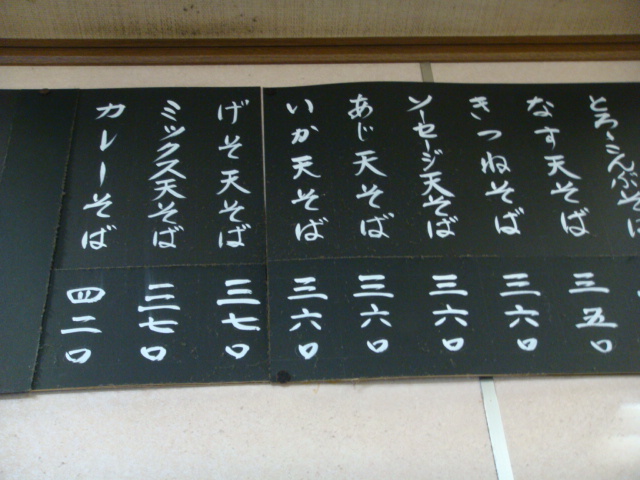 とろゝこんぶそば
なす天そば 三五〇
きつねそば 三六〇
ソーセージ天そば 三六〇
あじ天そば 三六〇
いか天そば 三六〇
げそ天そば 三七〇
ミックス天そば 三七〇
カレーそば 四二〇